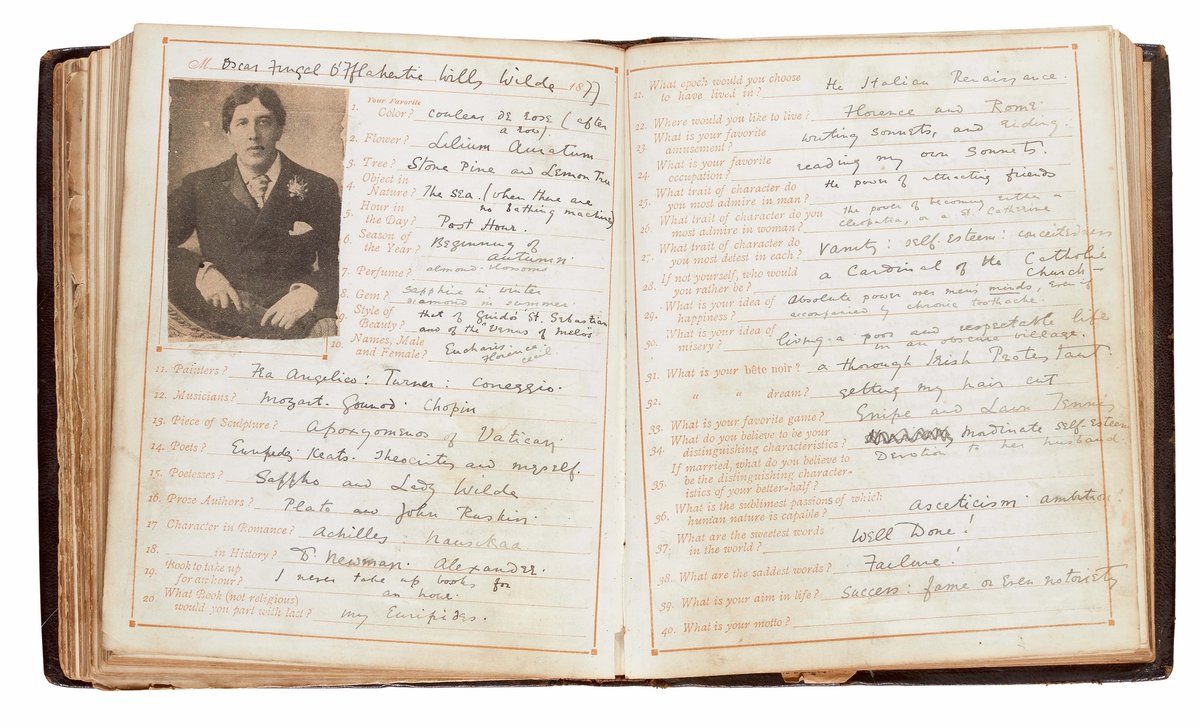 M Oscar Fingal O'Fflahertie Wills Wilde 1877
1. Your Favorite
Color? couleur de rose (after
a row).
2. Flower? Lilium Auratum
3. Tree? Stone Pine and Lemon Tree
4. Object in
Nature? The sea. (when there are
no bathing machines
5. Hour in
the Day? Post Hour.
6. Season of
the Year? Beginning of
autumn.
7. Perfume? almond-blossoms
8. Gem? sapphire in winter
diamond in summer
9. Style of
Beauty? that of Guido's St. Sebastian
and of the "Venus of Melos"
10. Names, Male
and Female? Eucharis. Florence
Cecil.
11. Painters? Fra Angelico: Turner: Correggio.
12. Musicians? Mozart. Gounod. Chopin
13. Piece of Sculpture? Apoxyomenos of Vatican
14. Poets? Euripides Keats. Theocritus and myself.
15. Poetesses? Sappho and Lady Wilde
16. Prose Authors? Plato and John Ruskin.
17 Character in Romance? Achilles: Nausikaa
18. in History? Dr Newman. Alexander.
19. Book to take up
for an hour? I never take up books for
an hour.
20 What Book (not religious)
would you part with last? my Euripides.
21. What epoch would you choose
to have lived in? the Italian Renaissance.
22. Where would you like to live? Florence and Rome.
23. What is your favorite
amusement? writing sonnets, and riding.
24. What is your favorite
occupation? reading my own sonnets.
25. What trait of character do
you most admire in man? the power of attracting friends
26. What trait of character do you
most admire in woman? the power of becoming either a
Cleopatra, or a St. Catherine
27. What trait of character do
you most detest in each? Vanity: self-esteem: conceitedness
28. If not yourself, who would
you rather be? a Cardinal of the Catholic
Church—
29. What is your idea of
happiness? Absolute power over men's minds, even if
accompanied by chronic toothache.
30. What is your idea of
misery? living a poor and respectable life
in an obscure village.
31. What is your bête noir? a thorough Irish Protestant.
32. " " dream? getting my hair cut
33. What is your favorite game? Snipe and Lawn Tennis
34. What do you believe to be your
distinguishing characteristics? inordinate self-esteem
35. If married, what do you believe to
be the distinguishing character-
istics of your better-half? Devotion to her husband.
36. What is the sublimest passions of which
human nature is capable? asceticism. ambition!
37. What are the sweetest words
in the world? Well Done!
38. What are the saddest words? Failure!
39. What is your aim in life? Success: fame or even notoriety
40. What is your motto?